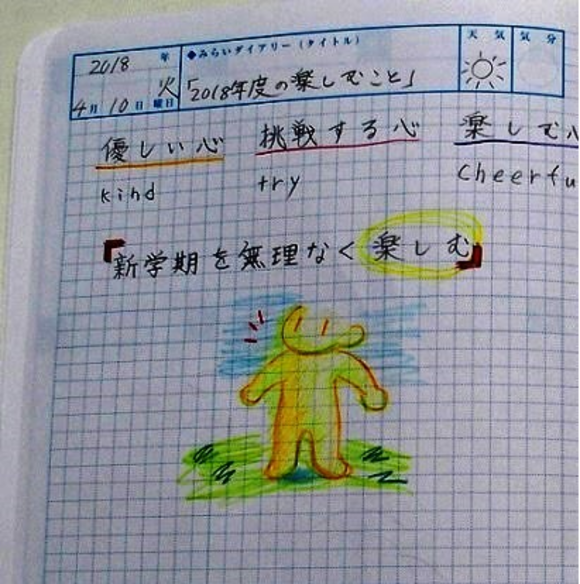 2018年 ◆みらいダイアリー(タイトル) 天気 気分
4月10日 火曜日 「2018年度の楽しむこと」
優しい心 挑戦する心 楽しむ
kind try cheerfu
『新学期を無理なく楽しむ』